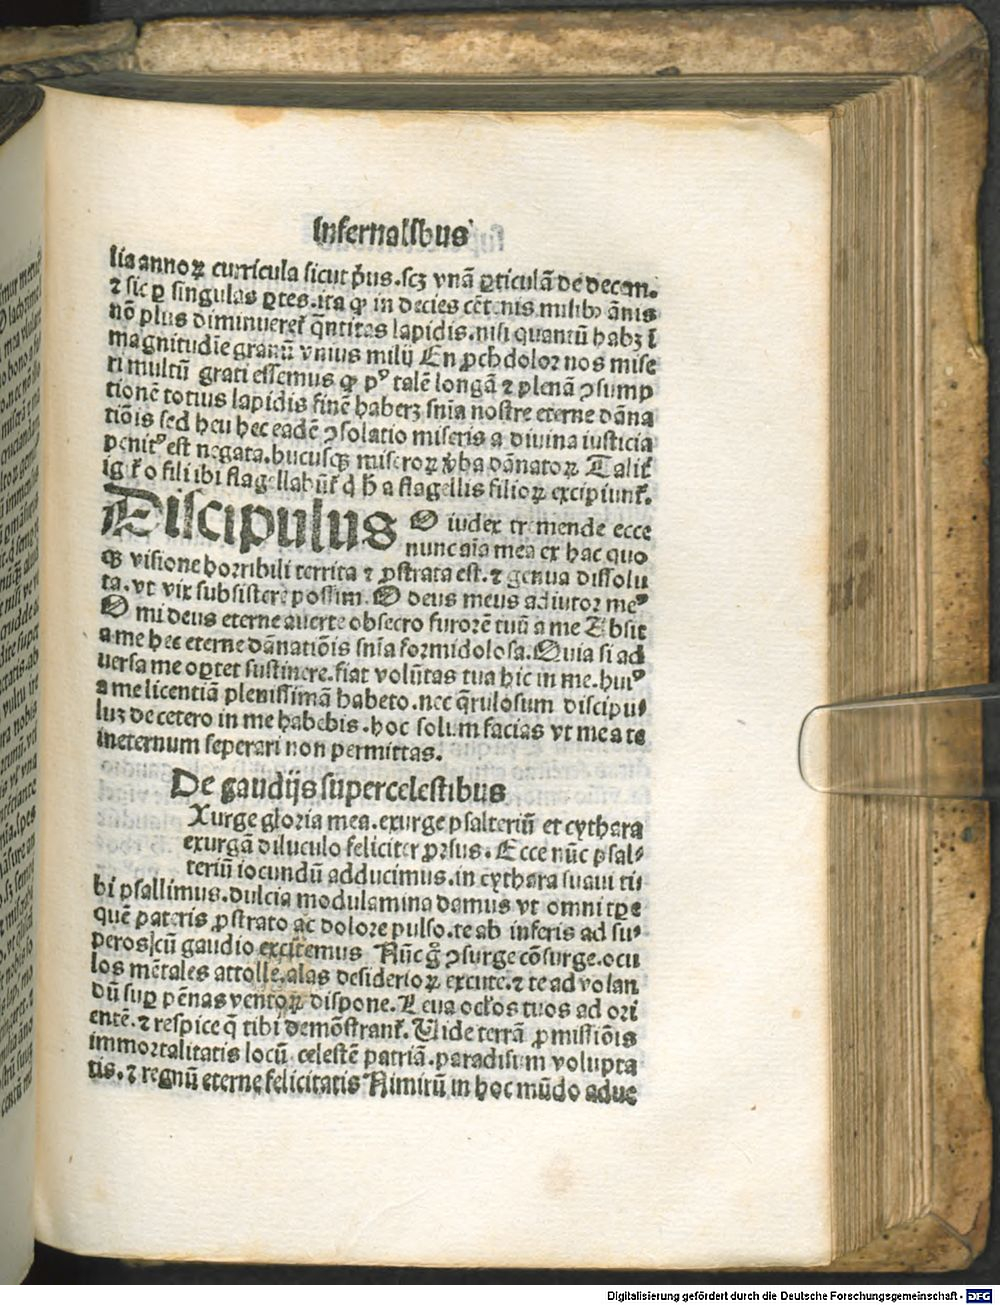 Infernalibus
lia annoꝝ curricula sicut pͥus.scꝫ vnã ꝑticulã de decem.
⁊ sic ꝑ singulas ꝑtes.ita ꝙ in decies cẽtenis milibꝰ ãnis
nõ plus diminueret᷑ q̃ntitas lapidis.nisi quantũ habꝫ ĩ
magnitudĩe granũ vnius milij En ꝓch dolor nos mise
ri multũ grati essemus ꝙ pꝰ talẽ longã ⁊ plenã ꝯsump
tionẽ totius lapidis finẽ haberꝫ snĩa nostre eterne dãna
tiõis sed heu hec eadẽ ꝯsolatio miseris a diuina iusticia
penitꝰ est negata.hucusqꝫ miseroꝝ v̾ba dãnatoꝝ Talit᷑
igit᷑ o fili ibi flagellabũt᷑ q̇ h̾ a flagellis filioꝝ excipiunt᷑.
Discipulus O iudex tremende ecce
nunc aĩa mea ex hac quo
qꝫ visione horribili territa ⁊ ꝓstrata est.⁊ genua dissolu
ta.vt vix subsistere possim.O deus meus adiutor meꝰ
O mi deus eterne auerte obsecro furorẽ tuũ a me Absit
a me hec eterne dãnatiõis snĩa formidolosa.Quia si ad
uersa me oꝑtet sustinere.fiat volũtas tua hic in me.huiꝰ
a me licentiã plenissimã habeto.nec q̃rulosum discipu⸗
luꝫ de cetero in me habebis.hoc solum facias vt me a te
ineternum seperari non permittas.
De gaudijs supercelestibus
Xurge gloria mea.exurge psalteriũ et cythara
exurgã diluculo feliciter ꝓrsus.Ecce nũc psal⸗
teriũ iocundũ adducimus.in cythara suaui ti⸗
bi psallimus.dulcia modulamina damus vt omni tꝑe
quẽ pateris ꝓstrato ac dolore pulso.te ab inferis ad su⸗
peros cũ gaudio excitemus Nũc gͦ ꝯsurge cõsurge.ocu
los mẽtales attolle.alas desiderioꝝ excute.⁊ te ad volan
dũ suꝑ pẽnas ventoꝝ dispone.Leua oclos tuos ad ori
entẽ.⁊ respice q̃ tibi demõstrant᷑.Vide terrã ꝓmissiõis
immortalitatis locũ celestẽ patriã.paradisum volupta
tis.⁊ regnũ eterne felicitatis Nimirũ in hoc mũdo adue
Digitalisierung gefördert durch die Deutsche Forschungsgemeinschaft - DFG